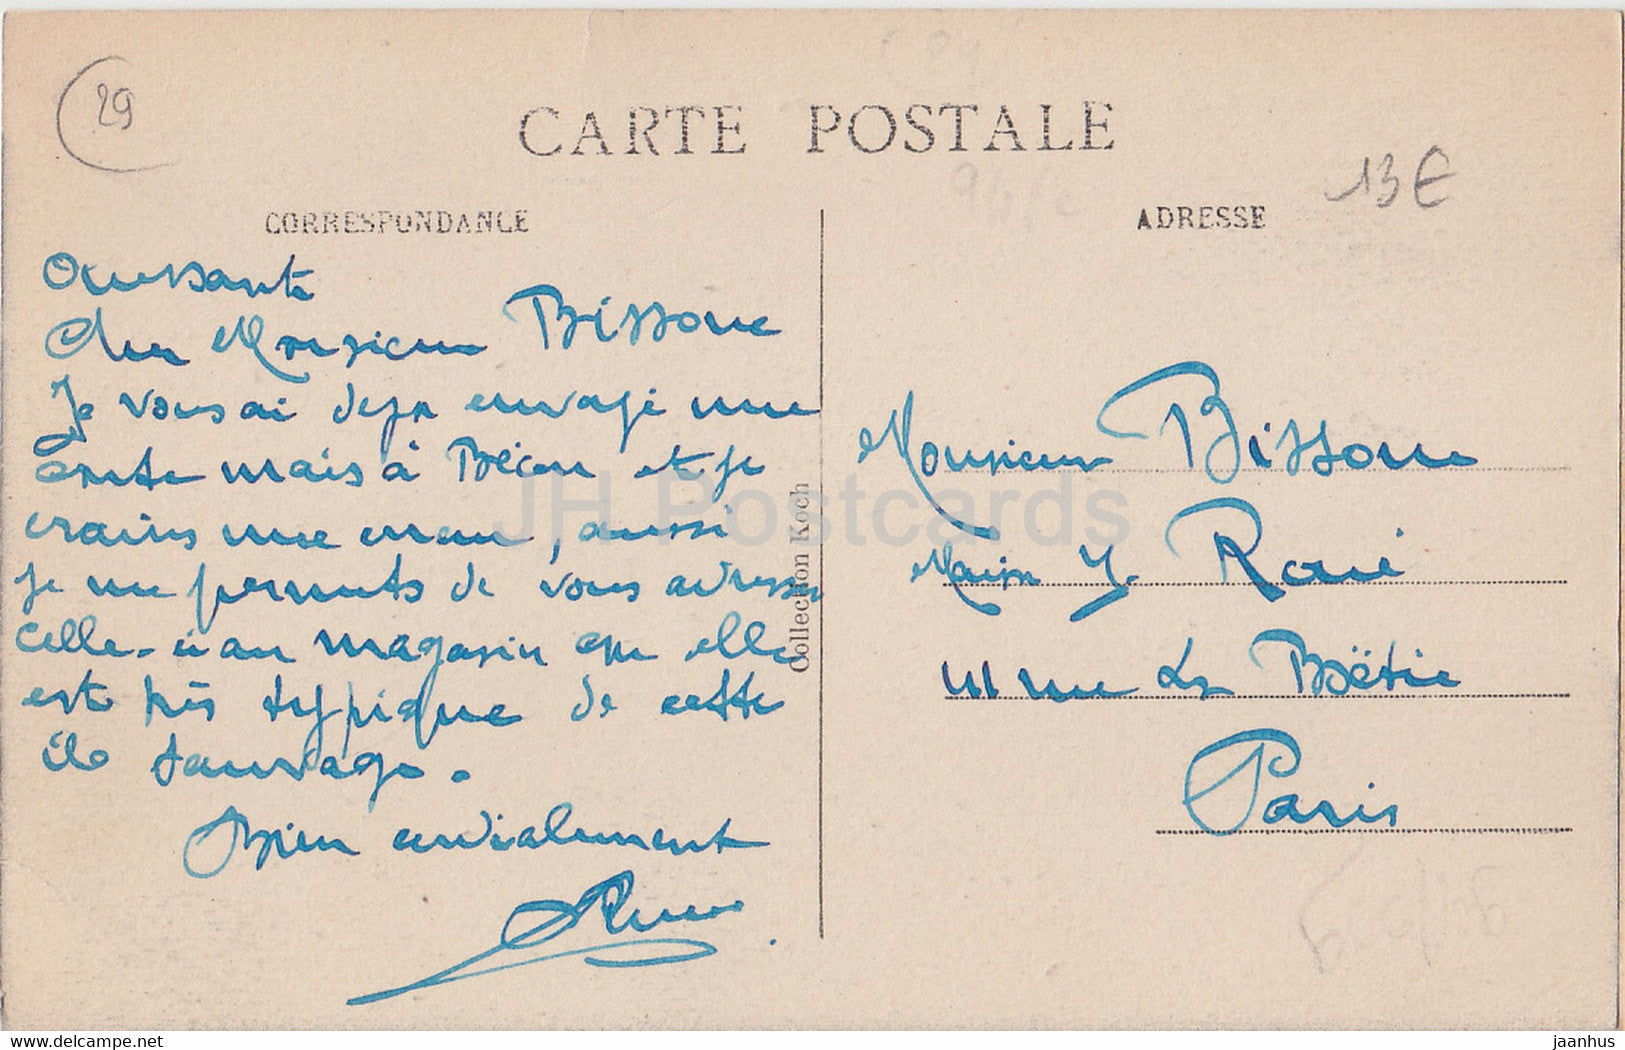 29
CARTE POSTALE
13€
CORRESPONDANCE
ADRESSE
Ouessant
Cher Monsieur Bissonne
Je vous ai deja envoyé une
carte mais à Bécon et je
crains une erreur, aussi
je me permets de vous adresser
celle-ci au magasin car elle
est très typique de cette
île sauvage.
Bien cordialement
Collection Koch
Monsieur Bissonne
Maison
111 rue La Bëtie
Paris
JH Postcards
delcampe.net
jaanhus